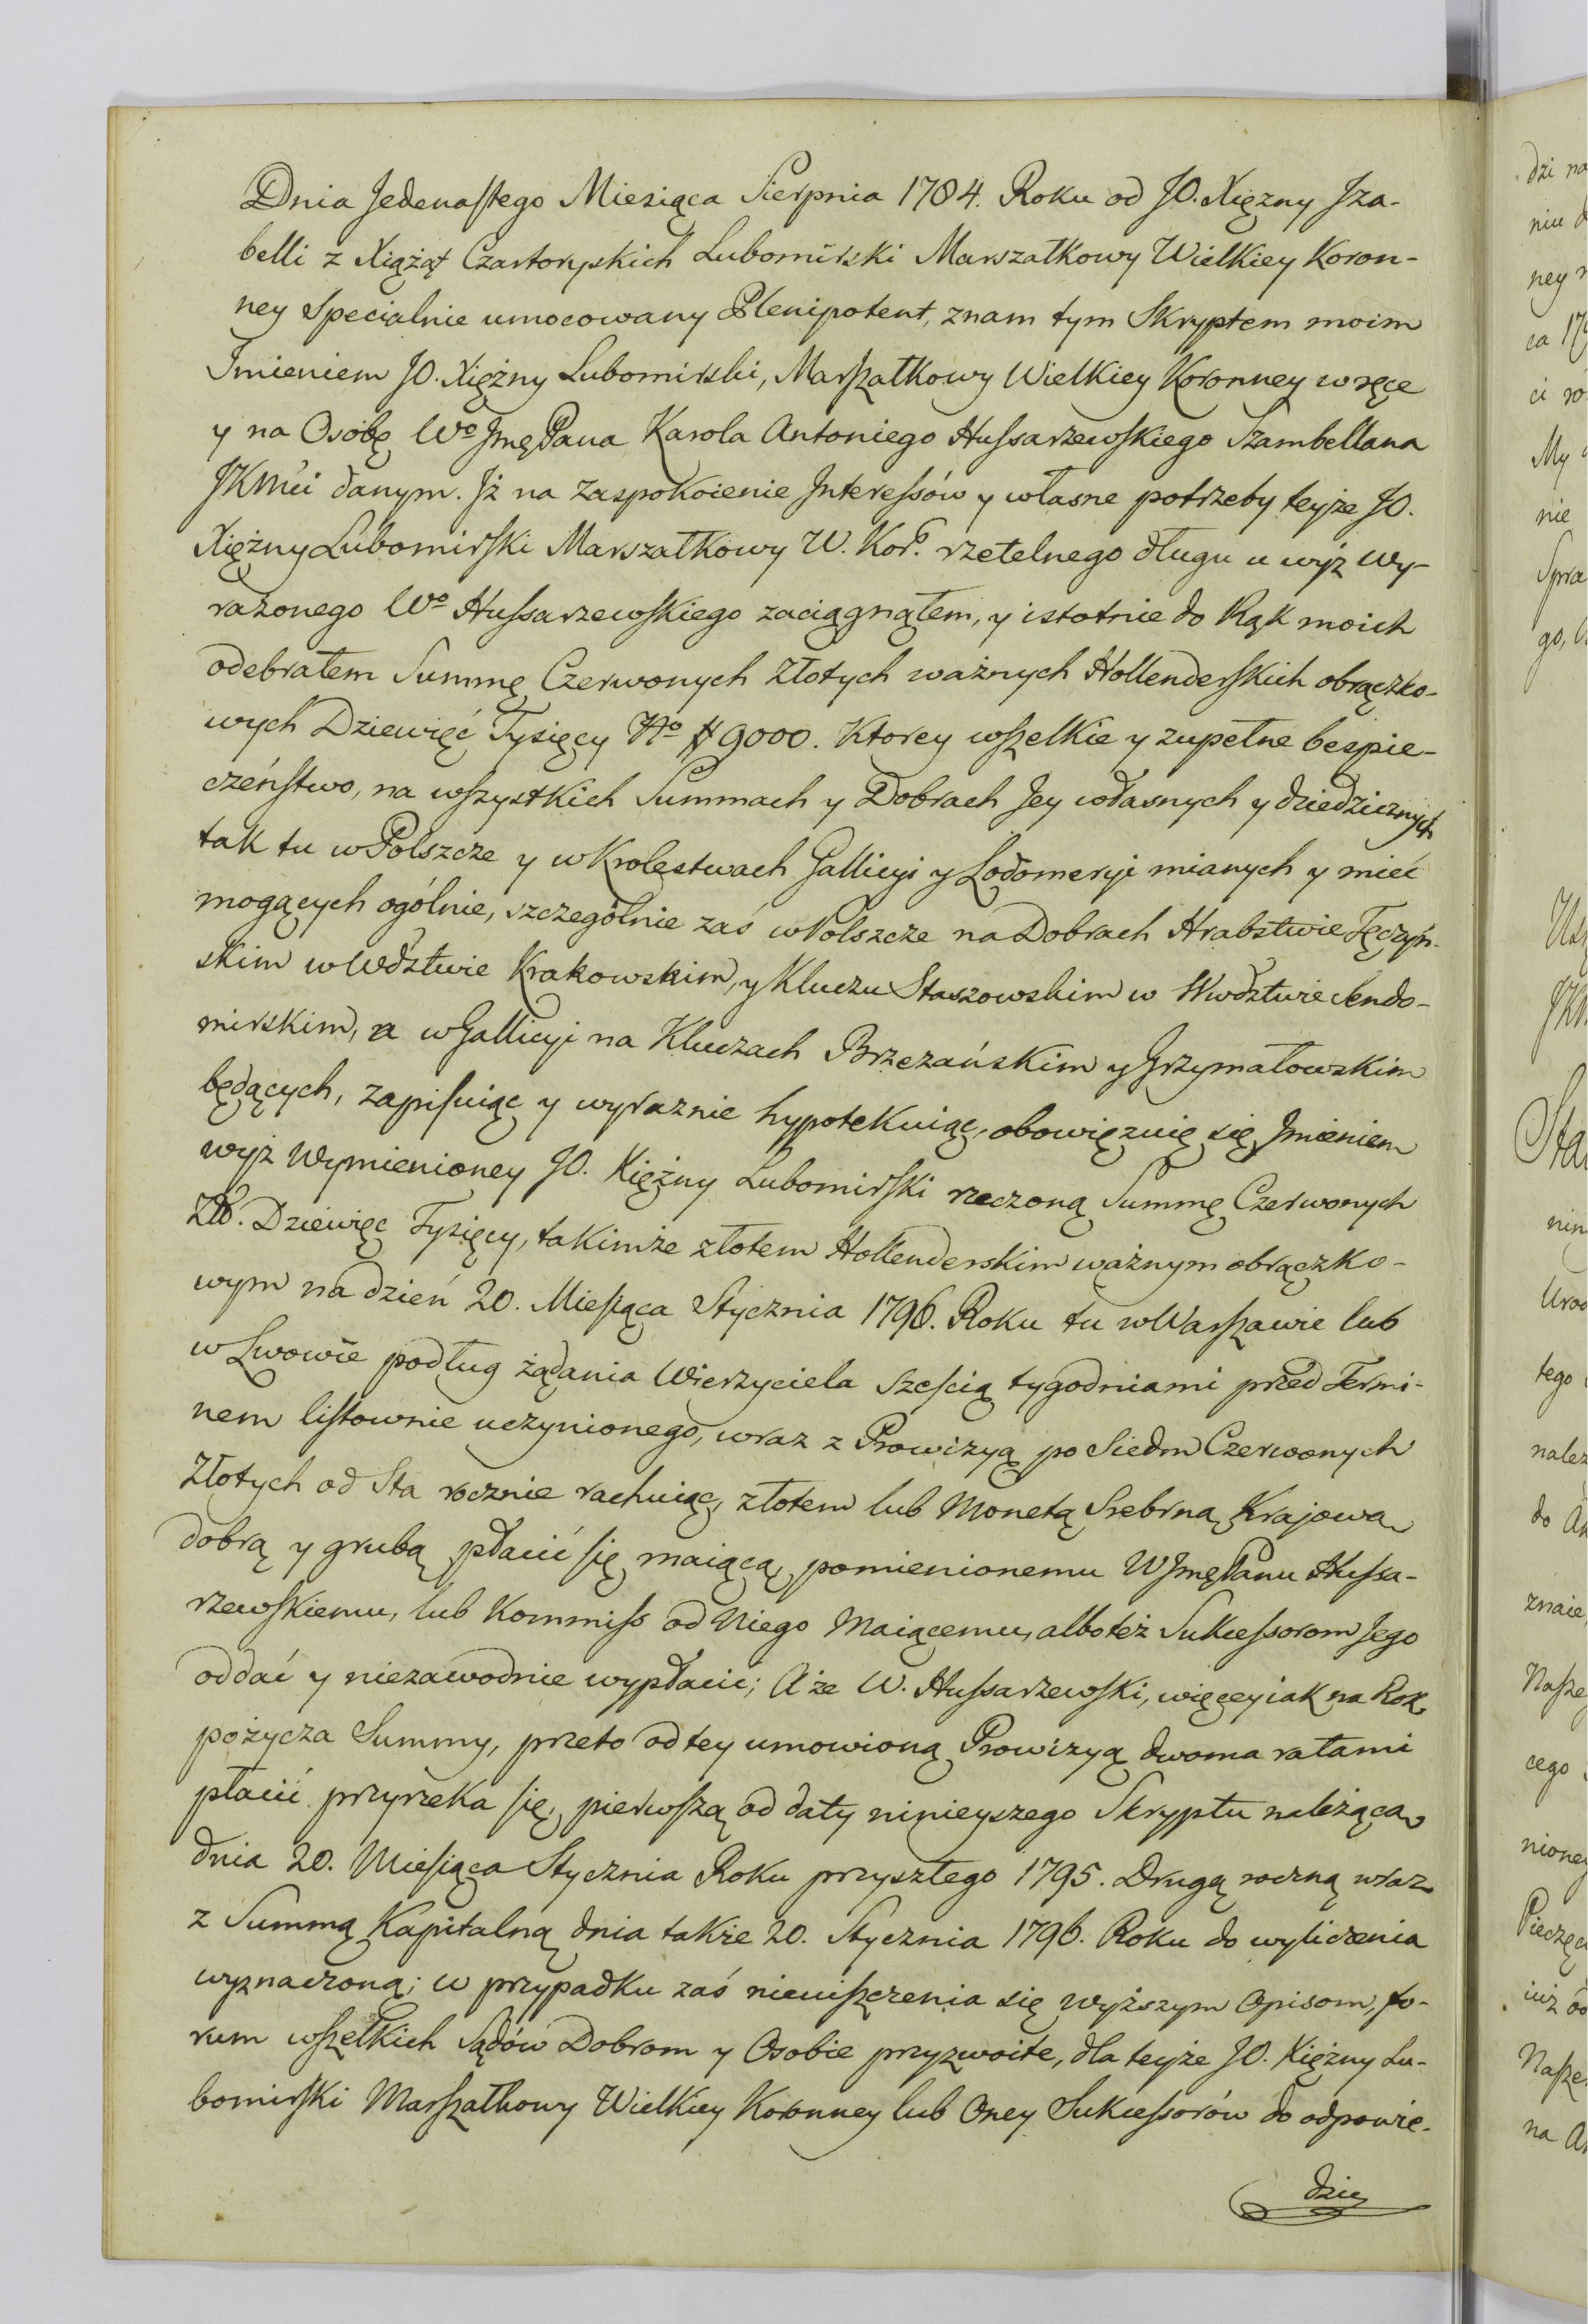 Dnia Jedenastego Miesiąca Sierpnia 1784. Roku od JO. Xięzny Jza-
belli z Xiążąt Czartoryskich Lubomirski Marszałkowy Wielkiey Koron-
ney specialnie umocowany Plenipotent, znam tym Skryptem moim
Jmieniem JO. Xiężny Lubomirski, Marszałkowy Wielkiey Koronney w ręce
y na Osobę Wo Jmę Pana Karola Antoniego Hussarzewskiego Szambellana
JKMci danym. Jż na zaspokoienie Jnteressów y własne potrzeby teyże JO.
Xiężny Lubomirski Marszałkowy W. Kor. rzetelnego długu u wyż wy-
rażonego Wo Hussarzewskiego zaciągnąłem, y istotnie do Rąk moich
odebrałem Summę Czerwonych Złotych ważnych Hollenderskich obrączko-
wych Dziewięć Tysięcy No # 9000. Ktorey wszelkie y zupełne bespie-
czeństwo, na wszystkich Summach y Dobrach Jey własnych y dziedzicznych
tak tu w Polszcze y w Krolestwach Gallicyi y Lodomeryi mianych y mieć
mogących ogólnie, szczególnie zaś w Polszcze na Dobrach Hrabstwie Tęczyń-
skim w Wdztwie Krakowskim, y Kluczu Staszowskim w Wwdztwie Sendo-
mirskim, a w Gallicyi na Kluczach Brzezańskim y Grzymałowskim
będących, zapisuiąc y wyraznie hypotekuiąc, obowięzuię się Jmieniem
wyż wymienioney JO. Xiężny Lubomirski rzeczoną Summę Czerwonych
Zło. Dziewięc Tysięcy, takimże złotem Hollenderskim ważnym obrączko-
wym na dzień 20. Miesiąca Stycznia 1796. Roku tu w Warszawie lub
w Lwowie podług żądania Wierzyciela sześcią tygodniami przed Termi-
nem listownie uczynionego, wraz z Prowizyą po Siedm Czerwonych
Złotych od Sta rocznie rachuiąc, złotem lub Monetą Srebrną Krajową
dobrą y grubą płacić się maiącą, pomienionemu W Jmę Panu Hussa-
rzewskiemu, lub Kommiss od Niego Maiącemu, albo też Sukcessorom Jego
oddać y niezawodnie wypłacić; A że W. Hussarzewski, więcey iak na Rok
pożycza Summy, przeto od tey umowioną Prowizyą dwoma ratami
płacić przyrzeka się, pierwszą od daty ninieyszego Skryptu należącą
dnia 20. Miesiąca Stycznia Roku przyszłego 1795. Drugą roczną wraz
z Summą Kapitalną dnia także 20. Stycznia 1796. Roku do wyliczenia
wyznaczoną; w przypadku zaś nieuiszczenia się wyższym Opisom, fo-
rum wszelkich Sądów Dobrom y Osobie przyzwoite, dla teyże JO. Xiężny Lu-
bomirski Marszałkowy Wielkiey Koronney lub Oney Sukcessorów do odpowie-
dzi